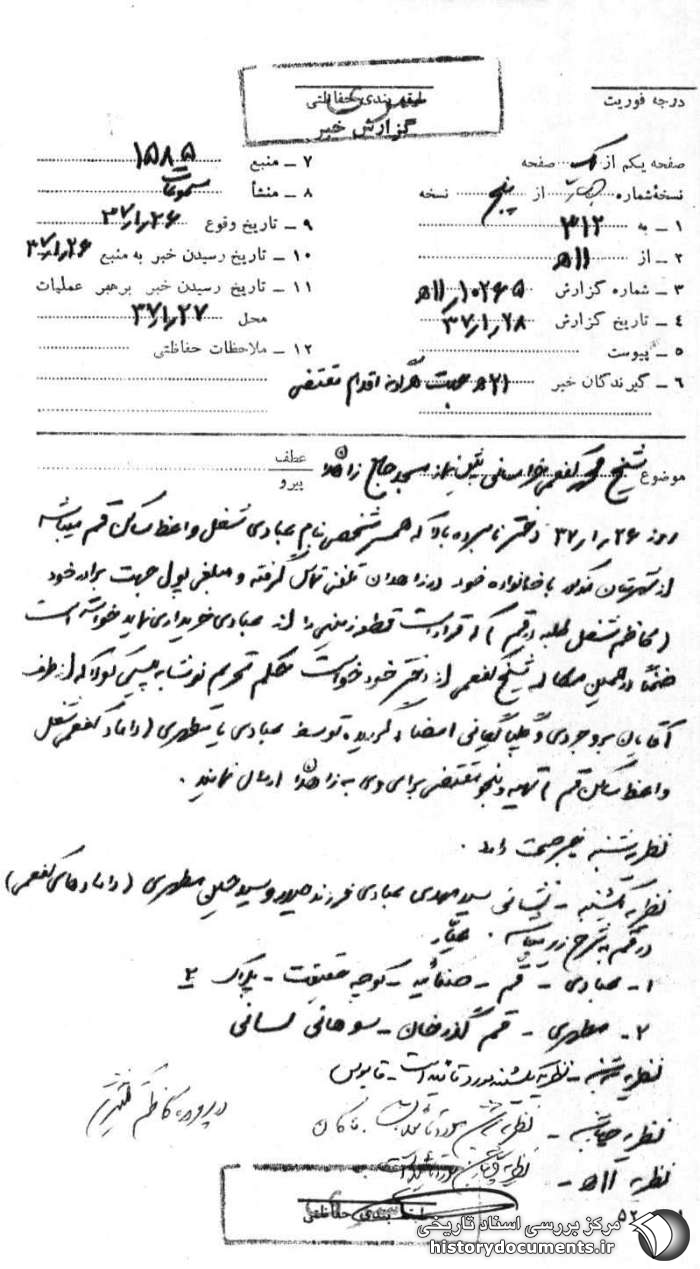 طبقه بندی حفاظتی
گزارش خبر
درجه فوریت
صفحه یکم از یک صفحه
نسخهٔ شماره از پنج نسخه
۱ ـ به ۳۱۲
۲ ـ از ۱۱ه
۳ ـ شماره گزارش ۱۰۲۶۵ر۱۱ه
۴ ـ تاریخ گزارش ۳۷ر۱ر۲۸
۵ ـ پیوست
۶ ـ گیرندگان خبر ۲۱ه جهت هرگونه اقدام مقتضی
۷ ـ منبع ۱۵۸۵
۸ ـ منشأ مسموعات
۹ ـ تاریخ وقوع ۳۷ر۱ر۲۶
۱۰ ـ تاریخ رسیدن خبر به منبع ۳۷ر۱ر۲۶
۱۱ ـ تاریخ رسیدن خبر برهبر عملیات
محل ۳۷ر۱ر۲۷
۱۲ ـ ملاحظات حفاظتی
موضوع شیخ محمد کفعمی خراسانی پیشنماز مسجد جامع زاهدان
عطف
پیرو
روز ۳۷ر۱ر۲۶ دختر نامبرده بالا که همسر شخصی بنام عبادی شغل واعظ ساکن قم میباشد
از شهرستان مذکور با خانواده خود در زاهدان تلفنی تماس گرفته و مبلغی پول جهت برادر خود
(کاظم شغل طلبه در قم) که قرار است قطعه زمینی را از عبادی خریداری نماید خواسته است
ضمناً در همین مکالمه شیخ کفعمی از دختر خود خواست حکم تحریم نوشابه پپسی کولا که از طرف
آقایان بروجردی و گلپایگانی امضاء گردیده توسط عبادی یا مطهری (داماد کفعمی شغل
واعظ ساکن قم) تهیه و بنحو مقتضی برای وی به زاهدان ارسال نمایند.
نظریه شنبه خبر صحت دارد.
نظریه یکشنبه ـ نشانی سید مهدی عبادی فرزند حیدر و سید حسین مطهری (دامادهای کفعمی)
در قم بشرح زیر میباشد.
۱ـ عبادی ـ قم ـ صفائیه ـ کوچه حقیقت ـ پلاک ۲
۲ـ مطهری ـ قم گذرخان ـ سوهانی لسانی
نظریه سه شنبه ـ نظریه یکشنبه مورد تائید است ـ قابوس
نظریه چهارشنبه ـ نظریه سه شنبه مورد تائید است
نظریه ۱۱ه ـ نظریه چهارشنبه مورد تائید است
در پرونده کاظم
طبقه بندی حفاظتی
۵۲
مرکز بررسی اسناد تاریخی
historydocuments.ir